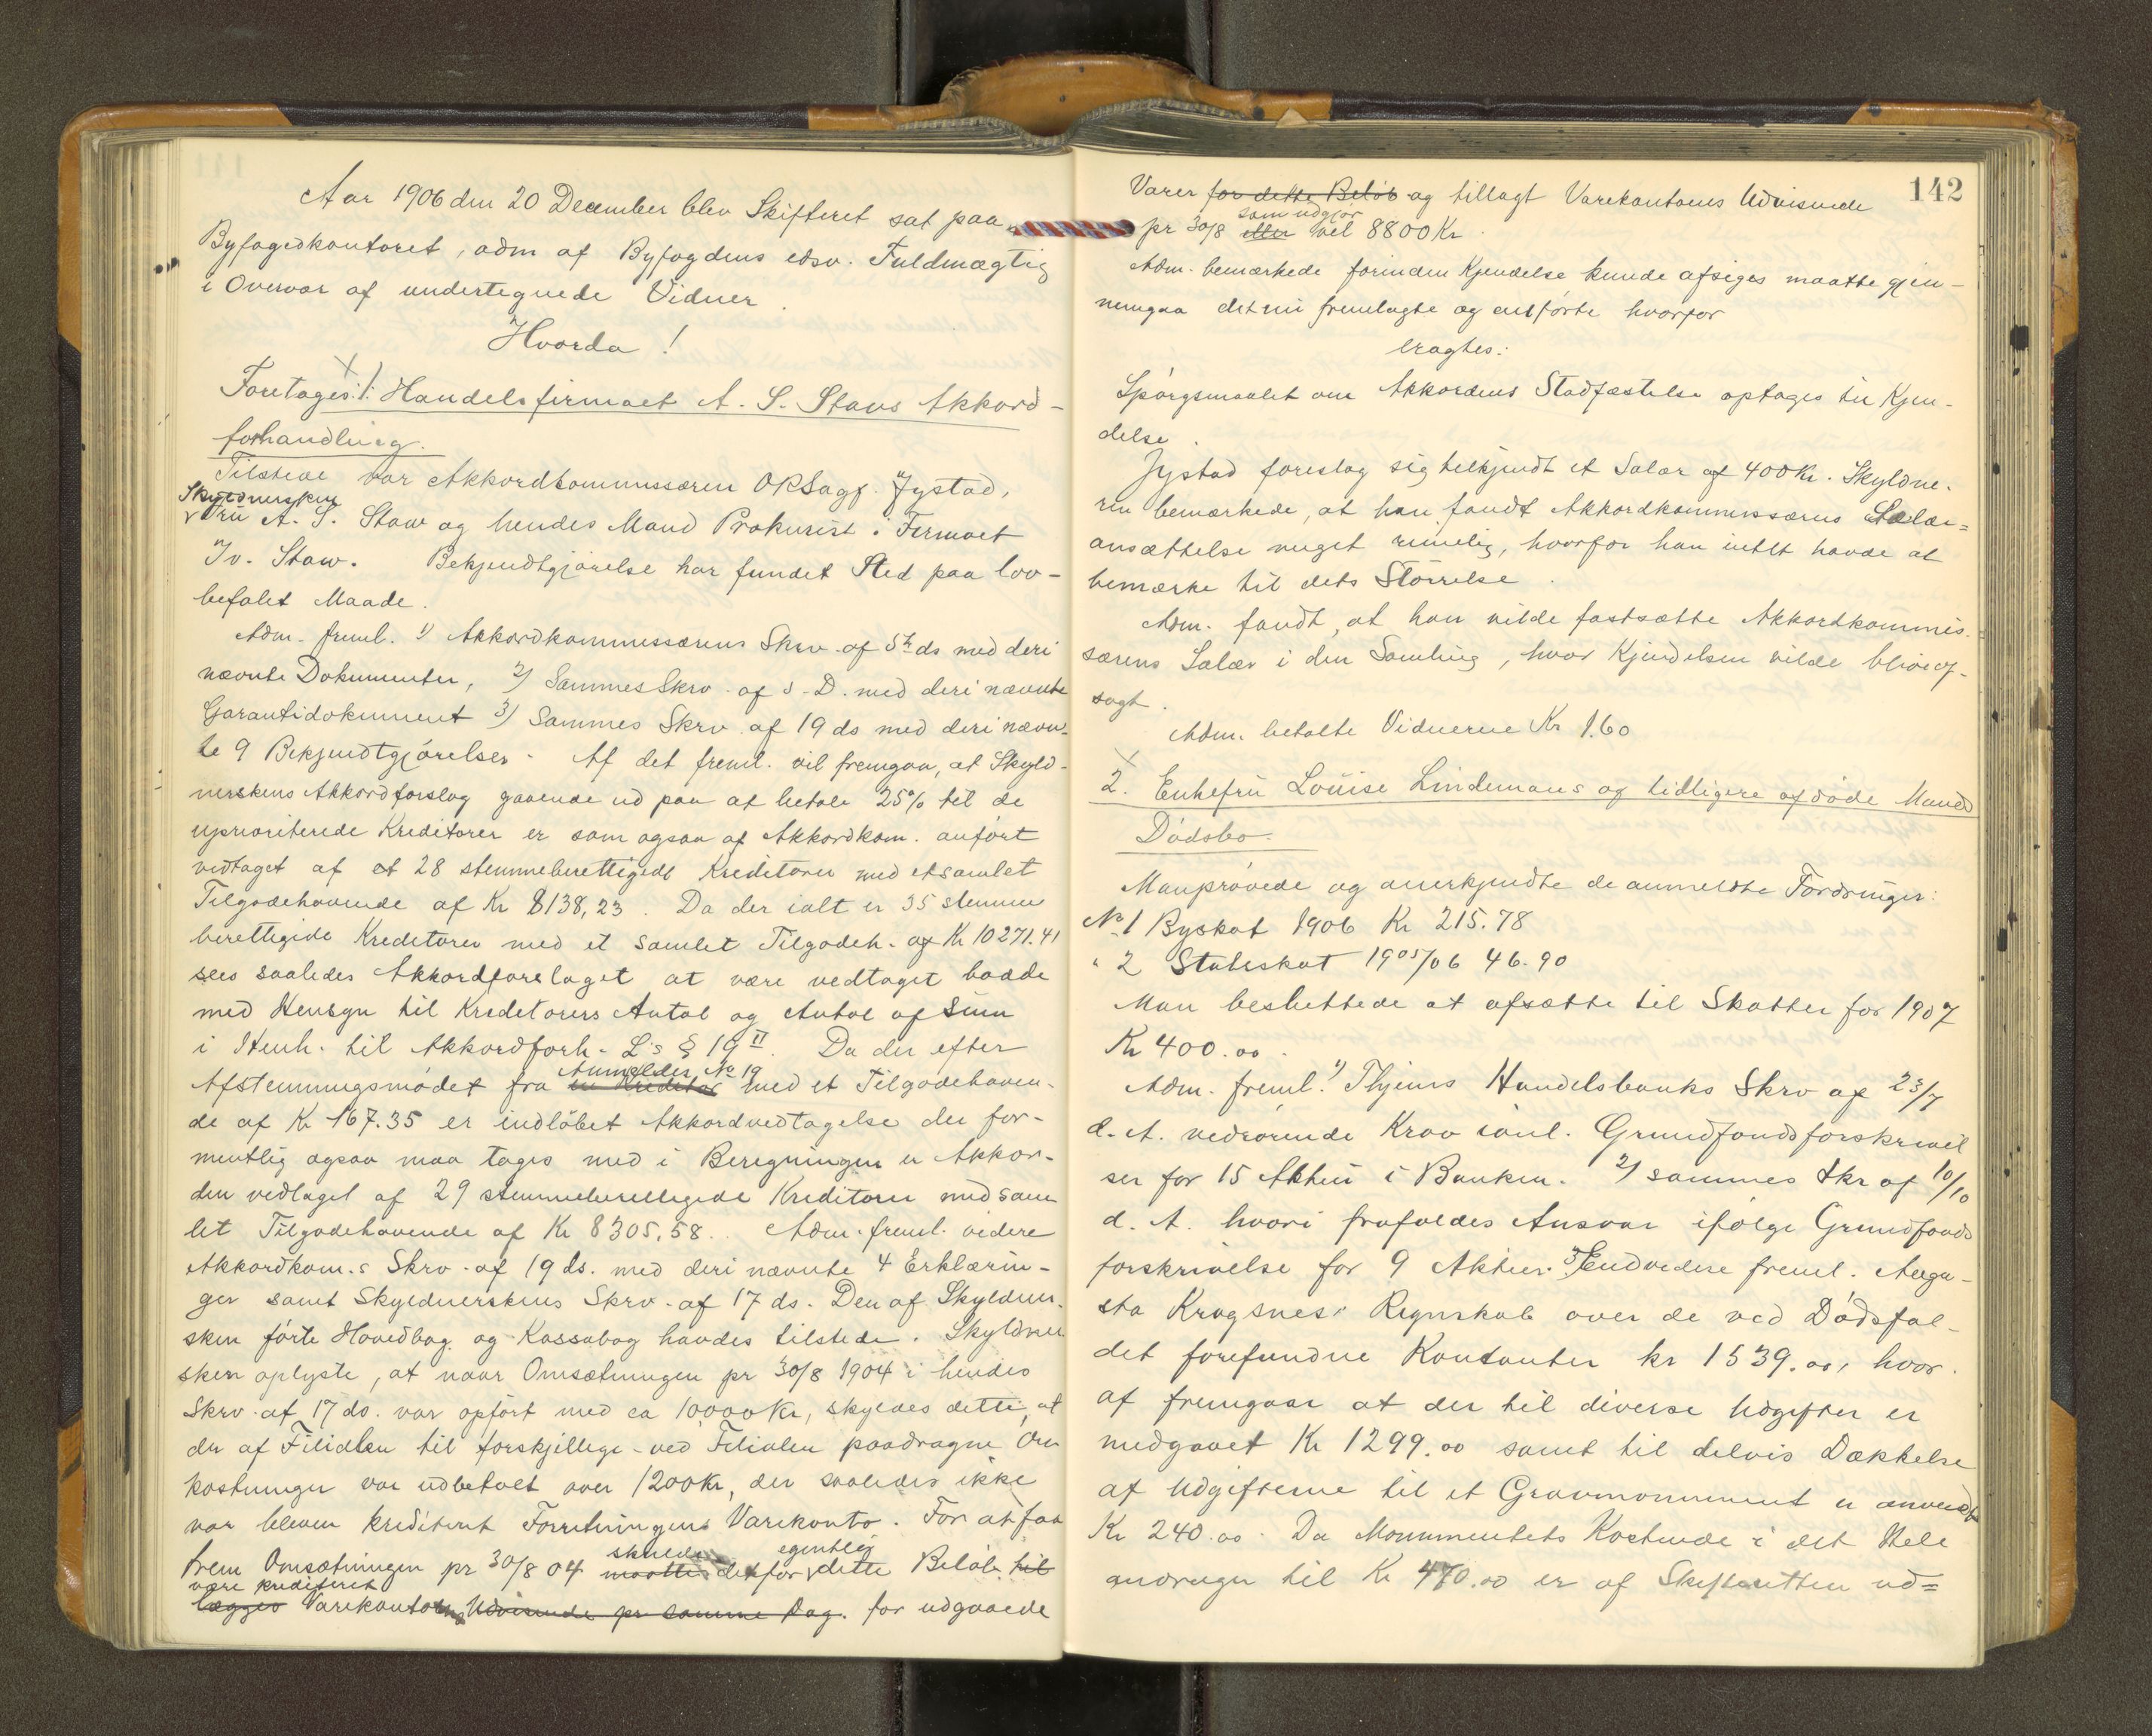 Aar 1906 den 20 December blev Skifteret sat paa
Byfogedkontoret, adm af Byfogdens edsv. Fuldmægtig
i Overvær af undertegnede Vidner.
Hvorda!
Foretages: 1. Handelsfirmaet A. S. Stavs Akkord-
forhandling.
Tilstede var Akkordkommissæren ORSagf. Jystad,
Skyldnersken
Fru A. S. Stav og hendes Mand Prokurist i Firmaet
Iv. Stav. Bekjendtgjørelse har fundet Sted paa lov-
befalet Maade.
Adm. freml. 1) Akkordkommissærens Skrv. af 5te ds med deri
nævnte Dokumenter, 2) Sammes Skrv. af s. D. med deri nævnte
Garantidokument 3) Sammes Skrv. af 19 ds med deri nævn-
te 9 Bekjendtgjørelser. Af det freml. vil fremgaa, at Skyld-
nerskens Akkordforslag gaaende ud paa at betale 25% til de
uprioriterede Kreditorer er som ogsaa af Akkordkom. anført
vedtaget af at 28 stemmeberettigede Kreditorer med et samlet
Tilgodehavende af Kr 8138,23. Da der ialt er 35 stemme
berettigede Kreditorer med et samlet Tilgodeh. af Kr 10271.41
sees saaledes Akkordforslaget at være vedtaget baade
med Hensyn til Kreditorers Antal og Antal af Sum
i Henh. til Akkordforh. L's § 19 II. Da der efter
Anmelder No 19
Afstemningsmødet fra en Kreditor med et Tilgodehaven-
de af Kr 167.35 er indløbet Akkordvedtagelse der for-
mentlig ogsaa maa tages med i Beregningen er Akkor-
den vedtaget af 29 stemmeberettigede Kreditorer med sam
let Tilgodehavende af Kr 8305,58. Adm. freml. videre
Akkordkom.s Skrv. af 19 ds. med deri nævnte 4 Erklærin-
ger samt Skyldnerskens Skrv. af 17 ds. Den af Skyldner-
sken førte Hovedbog og Kassabog havdes tilstede. Skyldner
sken oplyste, at naar Omsætningen pr 30/8 1904 i hendes
Skrv. af 17 ds. var opført med ca 10,000 Kr, skyldes dette, at
der af Filialen til forskjellige ved Filialen paadragne Om
kostninger var udbetalt over 1200 Kr, der saaledes ikke
var bleven krediteret Forretningens Varekonto. For at faa
skulde egentlig
frem Omsætningen pr 30/8 04 maatte derfor dette Beløb til
være krediteret
lægges Varekontoens Udvisende pr samme Dag. for udgaaede
142
Varer for dette Beløb og tillagt Varekontoens Udvisende
som udgjør
pr 30/8 eller vel 8800 Kr.
Adm. bemærkede forinden Kjendelse kunde afsiges maatte gjen-
nemgaa det nu fremlagte og anførte hvorfor
eragtes:
Spørgsmaalet om Akkordens Stadfæstelse optages til Kjen-
delse.
Jystad foreslog sig tilkjendt et Salær af 400 Kr. Skyldne-
ren bemærkede, at han fandt Akkordkommissærens Salær=
ansættelse meget rimelig, hvorfor han intet havde at
bemærke til dets Størrelse.
Adm. fandt, at han vilde fastsætte Akkordkommis-
særens Salær i den Samling, hvor Kjendelsen vilde blive af-
sagt.
Adm. betalte Vidnerne Kr 1.60
2. Enkefru Louise Lindemans og tidligere afdøde Mands
Dødsbo.
Man prøvede og anerkjendte de anmeldte Fordringer:
No 1 Byskat 1906 Kr 215.78
" 2 Statsskat 1905/06 46.90
Man besluttede at afsætte til Skatter for 1907
Kr 400.00.
Adm. freml. 1) Thjems Handelsbanks Skrv af 23/7
d. A. vedrørende Krav ifml. Grundfondsforskrivel
ser for 15 Aktier i Banken. 2) sammes Skr af 10/10
d. A. hvori frafaldes Ansvar ifølge Grundfonds
forskrivelse for 9 Aktier. 3) Endvidere freml. Augu-
sta Krogsnes' Regnskab over de ved Dødsfal-
det forefundne Kontanter kr 1539.00, hvor-
af fremgaar at der til diverse Udgifter er
medgaaet Kr 1299.00 samt til delvis Dækkelse
af Udgifterne til et Gravmonument er anvendt
Kr 240.00. Da Monumentets Kostende i det Hele
andrager til Kr 470.00 er af Skifteretten ud=